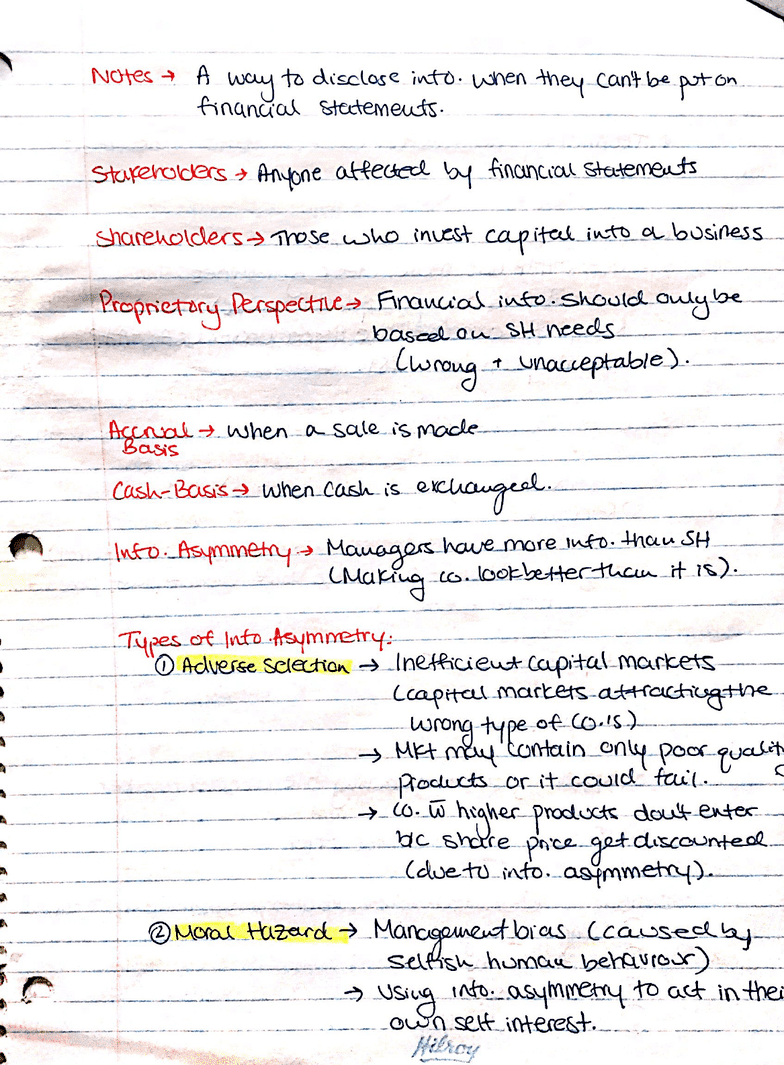 Notes → A way to disclose info. when they can't be put on
financial statements.
Stakeholders → Anyone affected by financial statements
Shareholders → Those who invest capital into a business
Proprietory Perspective → Financial info. should only be
based on SH needs
(wrong + unacceptable).
Accrual → when a sale is made
Basis
Cash-Basis → when cash is exchanged.
Info. Asymmetry → Managers have more info. than SH
(Making co. look better than it is).
Types of Info. Asymmetry:
① Adverse Selection → Inefficient capital markets
(capital markets attracting the
wrong type of co.'s)
→ Mkt may contain only poor qualit
products or it could fail.
→ co. w̅ higher products don't enter
b/c share price get discounted
(due to info. asymmetry).
② Moral Hazard → Management bias (caused by
selfish human behaviour)
→ using info. asymmetry to act in thei
own self interest.
Hilroy